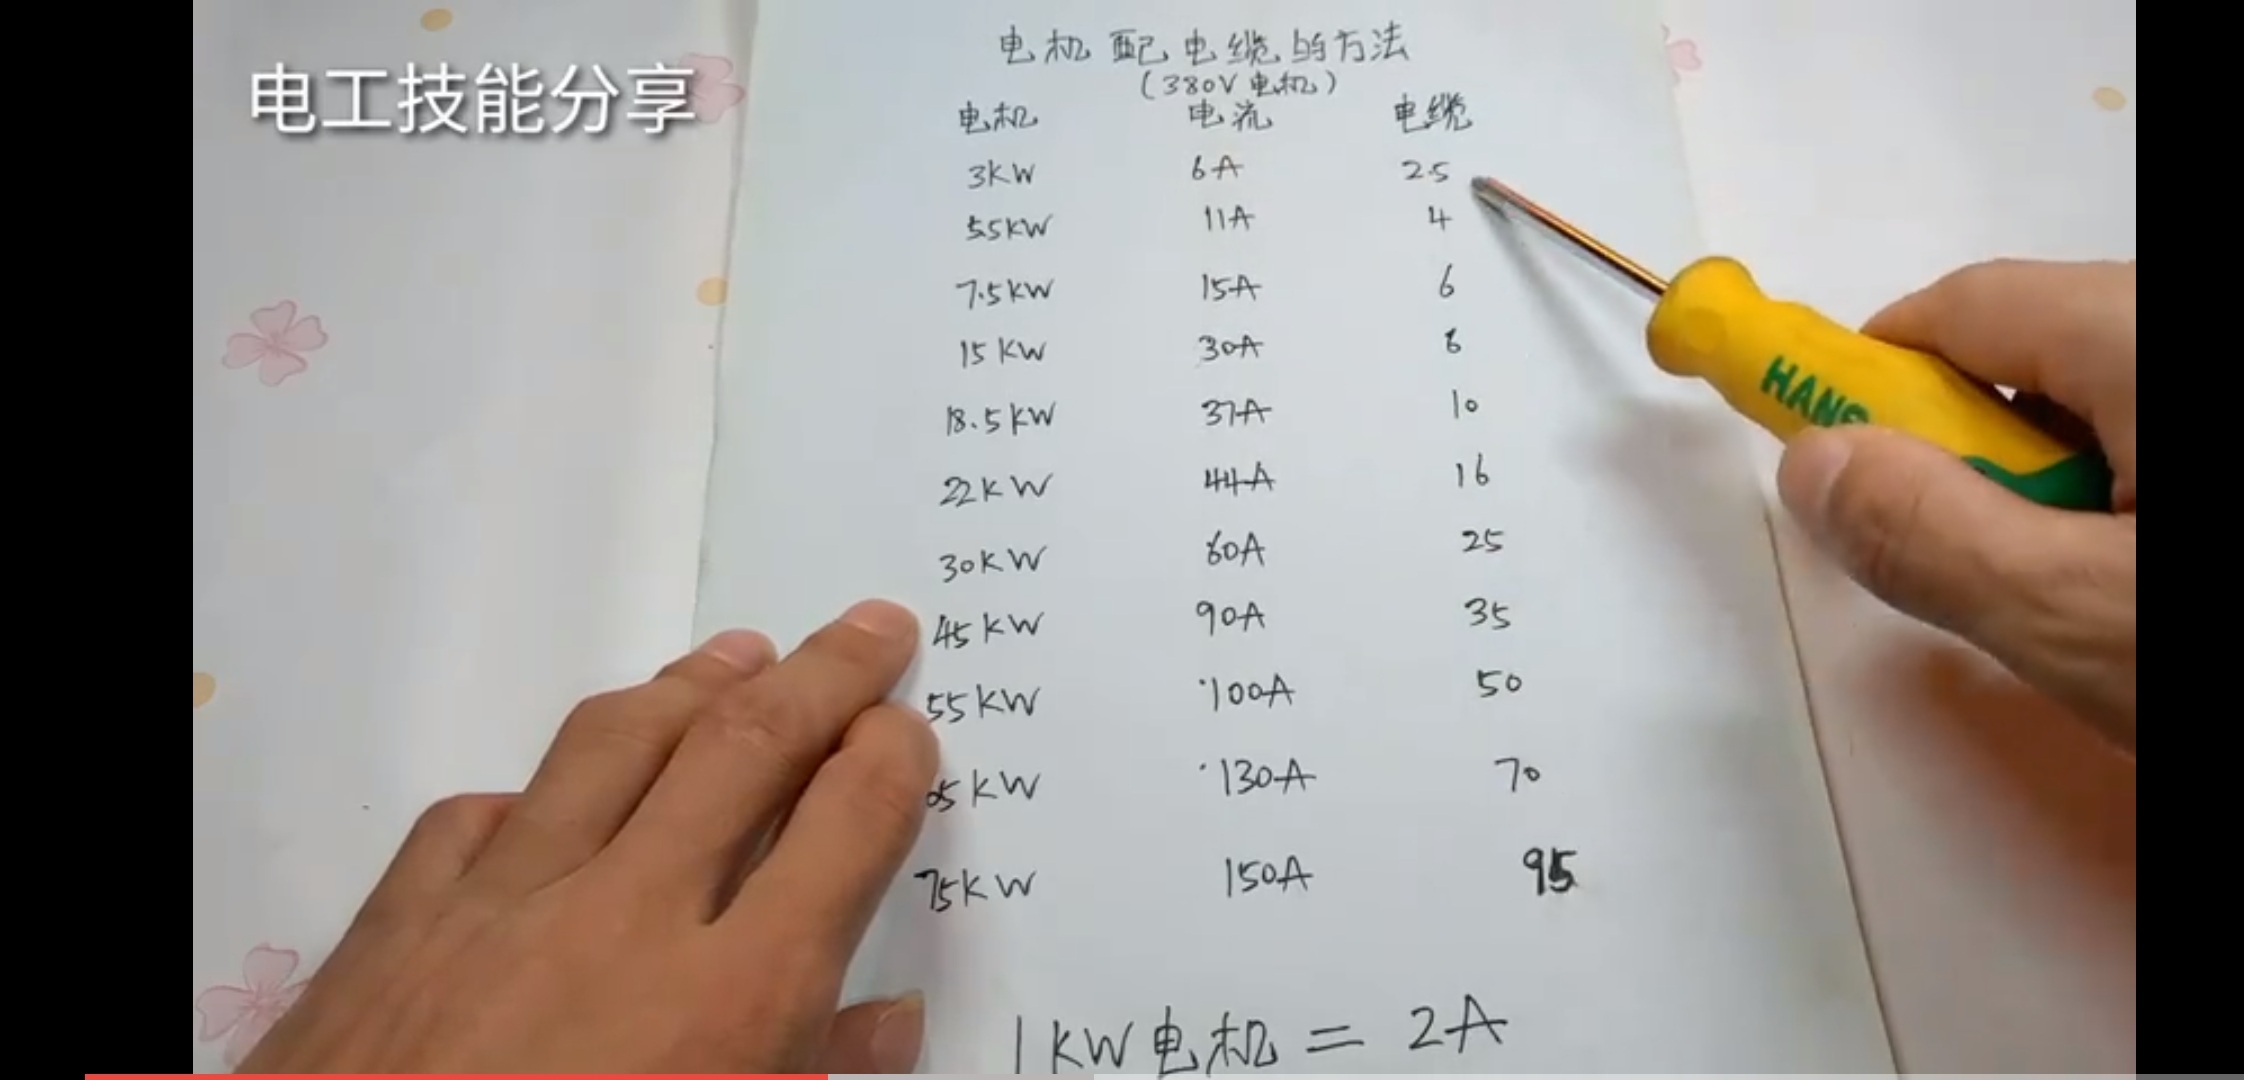 电工技能分享
电机配电缆的方法
(380V电机)
电机 电流 电缆
3KW 6A 2.5
5.5KW 11A 4
7.5KW 15A 6
15KW 30A 8
18.5KW 37A 10
22KW 44A 16
30KW 60A 25
45KW 90A 35
55KW 100A 50
5KW 130A 70
75KW 150A 95
1KW电机=2A
HANS